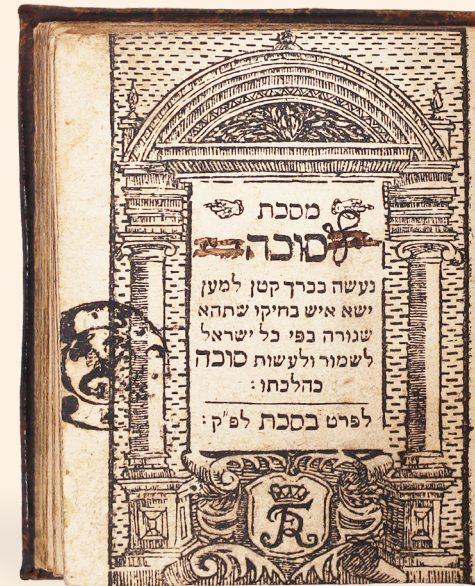 מסכת
סוכה
נעשה בכרך קטן למען
ישא איש בחיקו שתהא
שגורה בפי כל ישראל
לשמור ולעשות סוכה
כהלכתו :
לפרט בסכת לפ״ק :